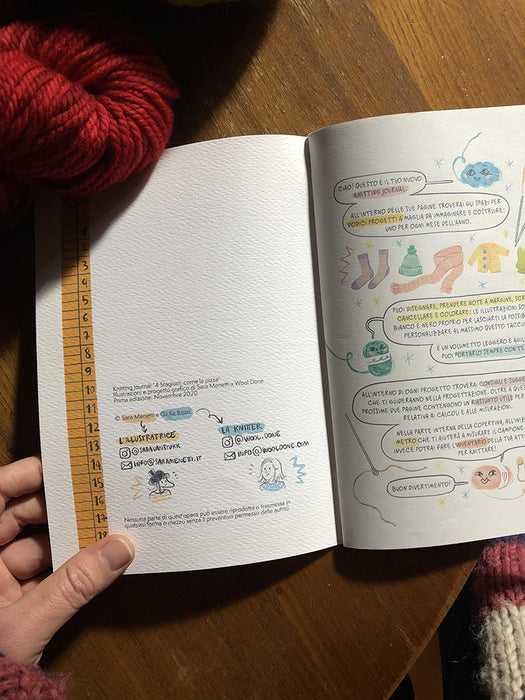 1
2
3
4
5
6
7
8
9
10
11
12
13
14
15
16
17
18
Knitting Journal "4 Stagioni, come la pizza"
Illustrazioni e progetto grafico di Sara Menetti x Wool Done
Prima edizione: Novembre 2020
© Sara Menetti e Giulia Boari
L'ILLUSTRATRICE
INFO@SARAMENETTI.IT
LA KNITTER
@WOOL.DONE
INFO@WOOLDONE.COM
Nessuna parte di quest'opera può essere riprodotta o trasmessa in
qualsiasi forma o mezzo senza il preventivo permesso delle autrici.
CIAO! QUESTO È IL TUO NUOVO
KNITTING JOURNAL.
ALL'INTERNO DELLE SUE PAGINE TROVERAI GLI SPAZI PER
DODICI PROGETTI A MAGLIA DA IMMAGINARE E COSTRUIRE:
UNO PER OGNI MESE DELL'ANNO.
PUOI DISEGNARE, PRENDERE NOTE A MARGINE,
CANCELLARE E COLORARE: LE ILLUSTRAZIONI
BIANCO E NERO PROPRIO PER LASCIARTI LA
PERSONALIZZARE AL MASSIMO QUESTO
È UN VOLUMETTO LEGGERO E
PUOI PORTARLO SEMPRE CON
ALL'INTERNO DI OGNI PROGETTO TROVERAI CONSIGLI E
CHE TI GUIDERANNO NELLA PROGETTAZIONE. OLTRE A
PROSSIME DUE PAGINE CONTENGONO UN BESTIARIO UTILE PER
RELATIVA AI CALCOLI E ALLE MISURAZIONI.
NELLA PARTE INTERNA DELLA COPERTINA, ALL'INIZIO
METRO CHE TI AIUTERÀ A MISURARE IL CAMPIONE,
INVECE POTRAI FARE L'INVENTARIO DELLA TUA
PER KNITTARE!
BUON DIVERTIMENTO!